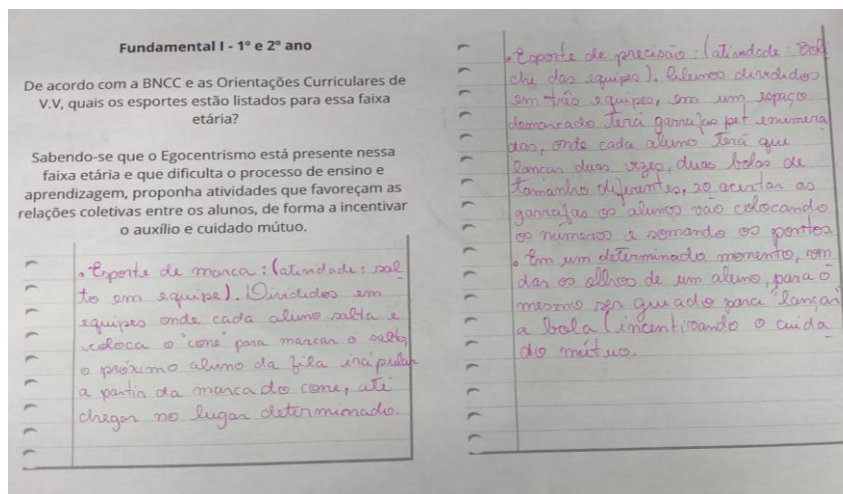 Fundamental I - 1º e 2º ano
De acordo com a BNCC e as Orientações Curriculares de
V.V, quais os esportes estão listados para essa faixa
etária?
Sabendo-se que o Egocentrismo está presente nessa
faixa etária e que dificulta o processo de ensino e
aprendizagem, proponha atividades que favoreçam as
relações coletivas entre os alunos, de forma a incentivar
o auxílio e cuidado mútuo.
• Esporte de marca: (atividade: sal
to em equipe). Divididos em
equipes onde cada aluno salta e
coloca o "cone" para marcar o salto,
o próximo aluno da fila irá pular
a partir da marca do cone, até
chegar no lugar determinado.
• Esporte de precisão: (atividade: Boli
che das equipes). Alunos divididos
em três equipes, em um espaço
demarcado terá garrafas pet enumera
das, onde cada aluno terá que
lançar duas vezes, duas bolas de
tamanho diferentes, ao acertar as
garrafas os alunos vão colocando
os números e somando os pontos.
• Em um determinado momento, ven
dar os olhos de um aluno, para o
mesmo ser guiado para "lançar"
a bola (incentivando o cuida
do mútuo.